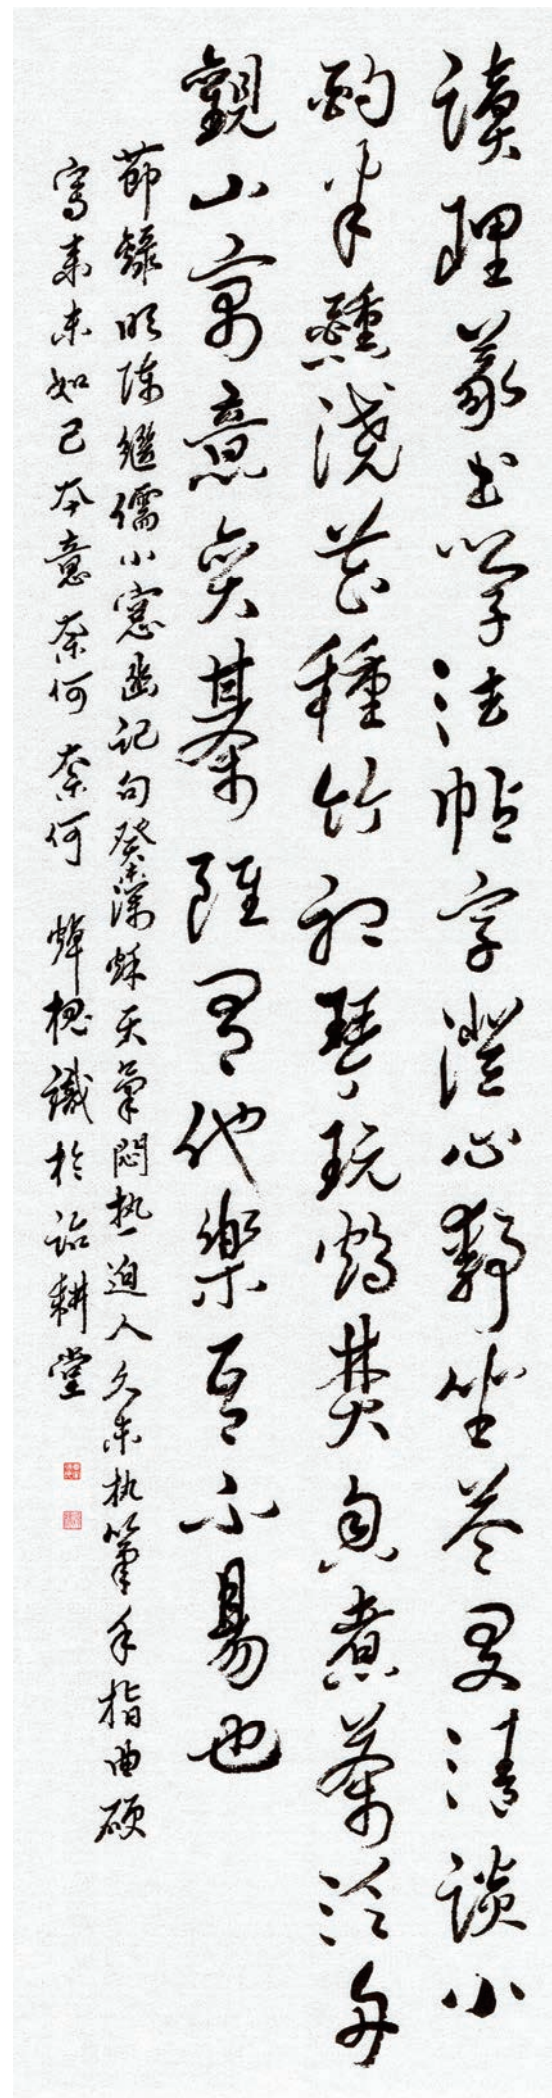 讀理義書學法帖字澄心靜坐益友清談小
酌半醺澆花種竹聽琴玩鶴焚香煮茶泛舟
觀山寓意奕棊雖有他樂吾不易也
節錄明陳繼儒小窗幽記句癸深秌天氣悶热迫人久未执筆手指曲硕
寫來未如己本意奈何奈何 焯槐識於詒耕堂